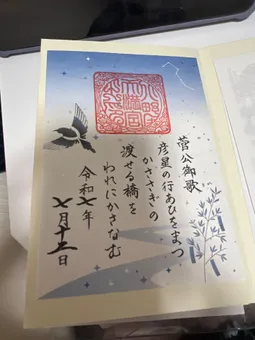 菅公御歌
彦星の行あひをまつ
かささぎの
渡せる橋を
われにかさなむ
令和七年
七月